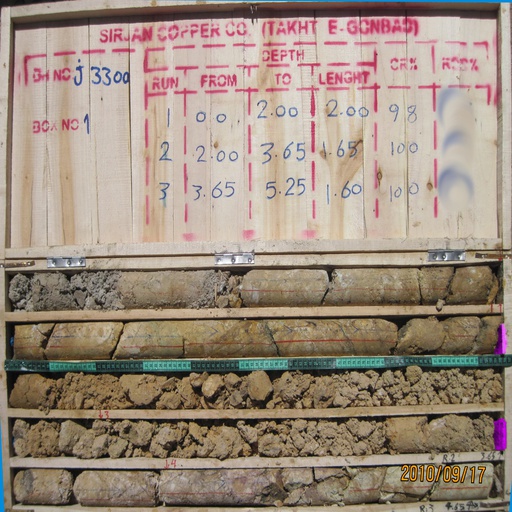 SIRJAN COPPER CO. (TAKHT E-GONBAD)
DEPTH
BH NO j 3300 RUN FROM TO LENGHT CR% RQD%
1 00 2.00 2.00 98
BOX NO 1
2 2.00 3.65 1.65 100
3 3.65 5.25 1.60 100
R.2
2010/09/17
R.3